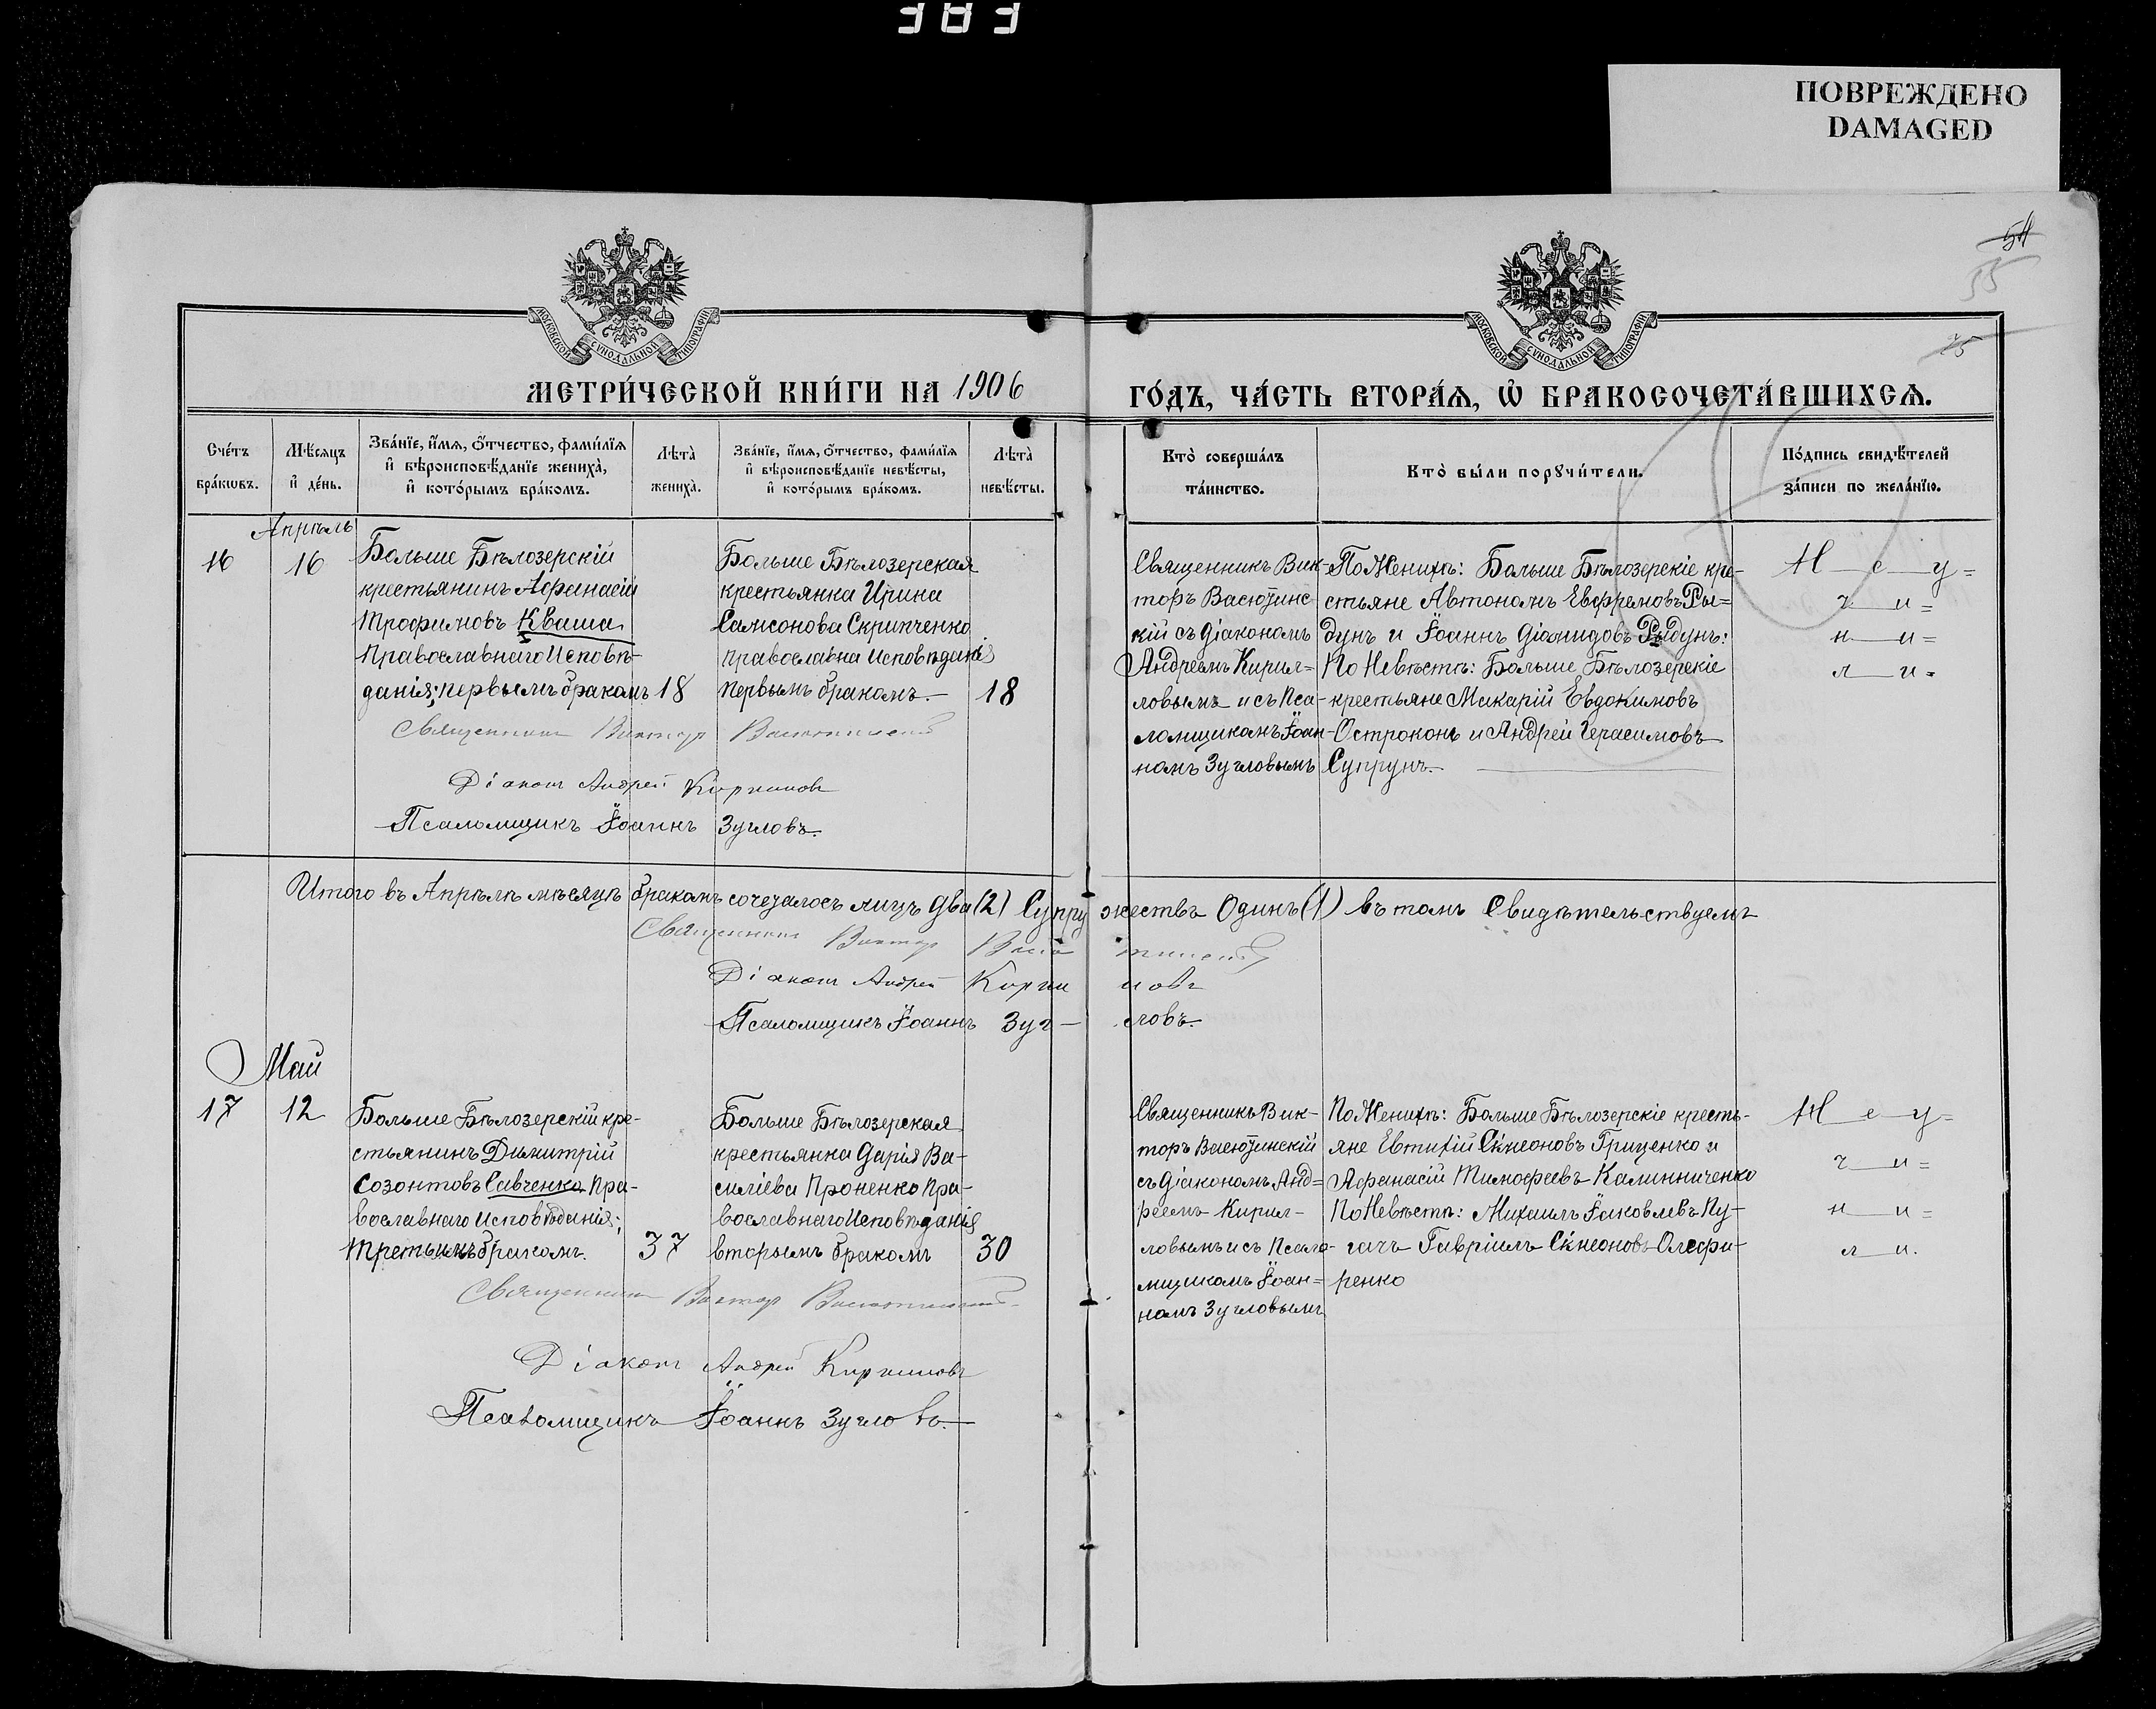 383
ПОВРЕЖДЕНО
DAMAGED
54
55
25
МОСКОВСКОЙ СУНОДАЛЬНОЙ ТИПОГРАФІИ
МОСКОВСКОЙ СУНОДАЛЬНОЙ ТИПОГРАФІИ
МЕТРИ́ЧЕСКОЙ КНИ́ГИ НА 1906
ГО́ДЪ, ЧА́СТЬ ВТОРА́Ѧ, Ѡ҆ БРАКОСОЧЕТА́ВШИХСѦ.
Сче́тъ
бра́кѡвъ.
Мѣ́сѧцъ
и҆ де́нь.
Зва́нїе, и҆́мѧ, ѻ҆́тчество, фами́лїѧ
и҆ вѣроисповѣ́данїе жениха̀,
и҆ кото́рымъ бра́комъ.
Лѣта̀
жениха̀.
Зва́нїе, и҆́мѧ, ѻ҆́тчество, фами́лїѧ
и҆ вѣроисповѣ́данїе невѣ́сты,
и҆ кото́рымъ бра́комъ.
Лѣта̀
невѣ́сты.
Кто̀ соверша́лъ
та́инство.
Кто̀ бы́ли порꙋчи́тели.
По́дпись свидѣ́телей
за́писи по жела́нїю.
Апрѣль
16
16
Больше Бѣлозерскій
крестьянинъ Афанасій
Трофимовъ Кваша
Православнаго Исповѣ-
данія; первымъ бракомъ
18
Больше Бѣлозерская
крестьянка Ирина
Самсонова Скрипченко
православна Исповѣданія
первымъ бракомъ.
18
Священникъ Вик-
торъ Васютинс
кій съ діакономъ
Андреемъ Кирил=
ловымъ и съ Пса-
ломщикомъ Іоан-
номъ Зугловымъ
По Женихѣ: Больше Бѣлозерскіе кре-
стьяне Автономъ Евфремовъ Ры=
дунъ и Іоаннъ Діомидовъ Рыдунъ:
По Невѣстѣ: Больше Бѣлозерскіе
крестьяне Макарій Евдокимовъ
Остроконь и Андрей Герасимовъ
Супрунъ.
Н е у=
ч и=
н и=
л и=
Священникъ Викторъ Васютинскій
Діаконъ Андрей Кирилловъ
Псаломщикъ Іоаннъ Зугловъ.
Итого въ Апрѣлѣ мѣсяцѣ бракомъ сочеталось лицъ два (2) Супружествъ Одинъ (1) въ томъ Свидѣтельствуемъ
Священникъ Викторъ Васютинскій
Діаконъ Андрей Кирилловъ
Псаломщикъ Іоаннъ Зуг-ловъ.
Май
17
12
Больше Бѣлозерскій кре-
стьянинъ Димитрій
Созонтовъ Савченко Пра-
вославнаго Исповѣданія;
третьимъ бракомъ.
37
Больше Бѣлозерская
крестьянка Дарія Ва-
силіева Проненко Пра-
вославнаго Исповѣданія
вторымъ бракомъ
30
Священникъ Вик-
торъ Васютинскій
съ діакономъ Анд=
реемъ Кирил-
ловымъ и съ Псало-
мщикомъ Іоан=
номъ Зугловымъ
По Женихѣ: Больше Бѣлозерскіе кресть-
яне Евтихій Симеоновъ Гриценко и
Афанасій Тимофеевъ Калинниченко
По Невѣстѣ: Михаилъ Іаковлевъ Пу-
гачъ Гавріилъ Симеоновъ Олефи-
ренко
Н е у=
ч и=
н и=
л и.
Священникъ Викторъ Васютинскій
Діаконъ Андрей Кирилловъ
Псаломщикъ Іоаннъ Зугловъ.